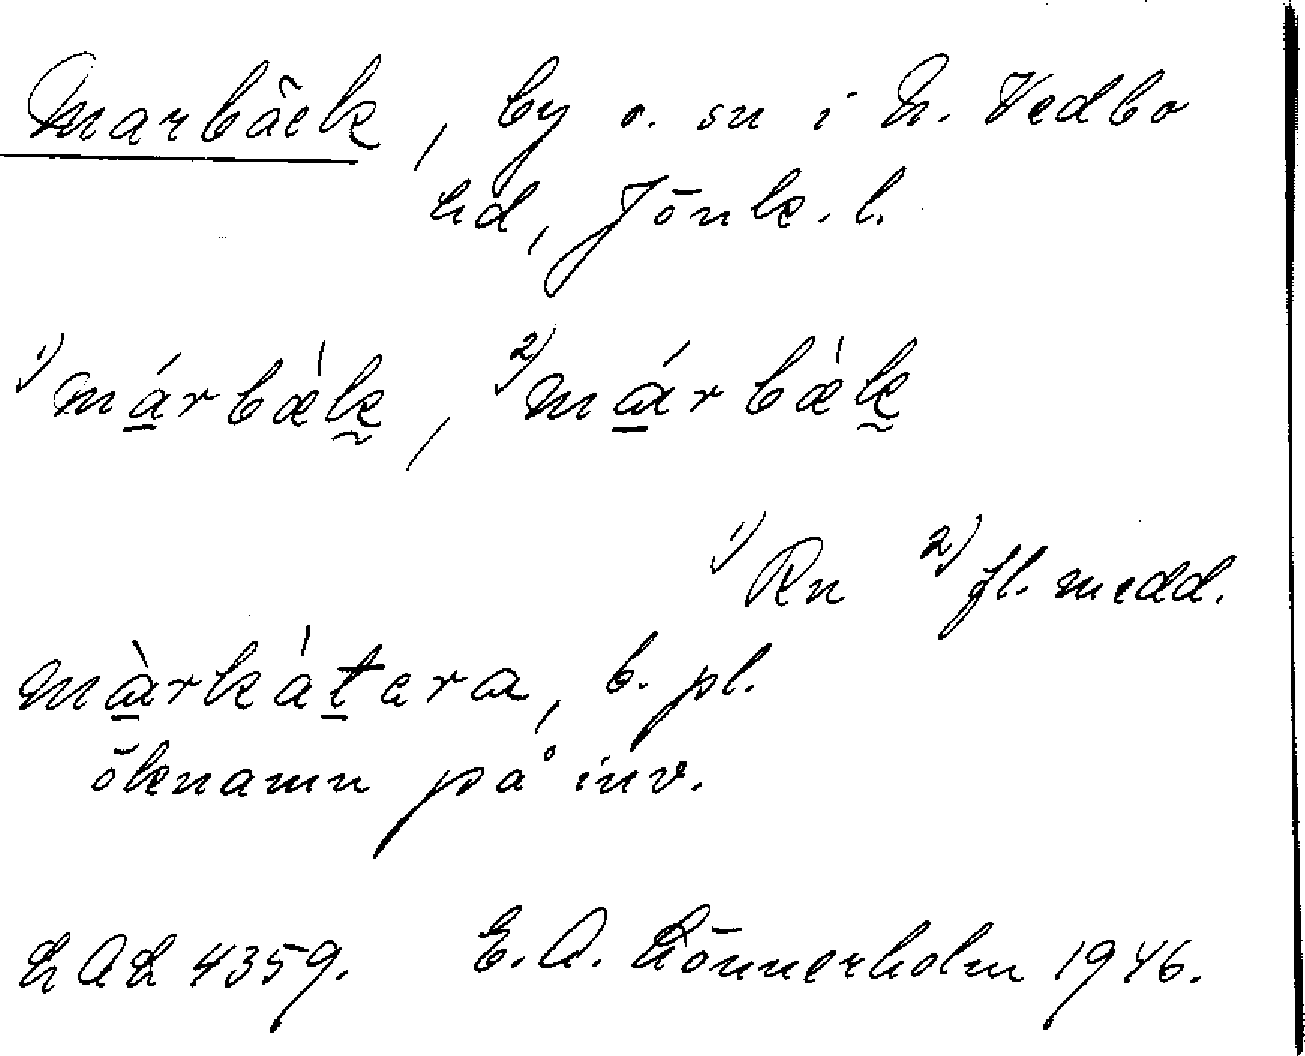 Marbäck, by o. sn i N. Vedbo
hd, Jönk. l.
1) márbæ̀k, 2) márbæ̀k
1) Rn 2) fl. medd.
màrkátera, b. pl.
öknamn på inv.
LAL 4359. E. A. Lönnerholm 1946.